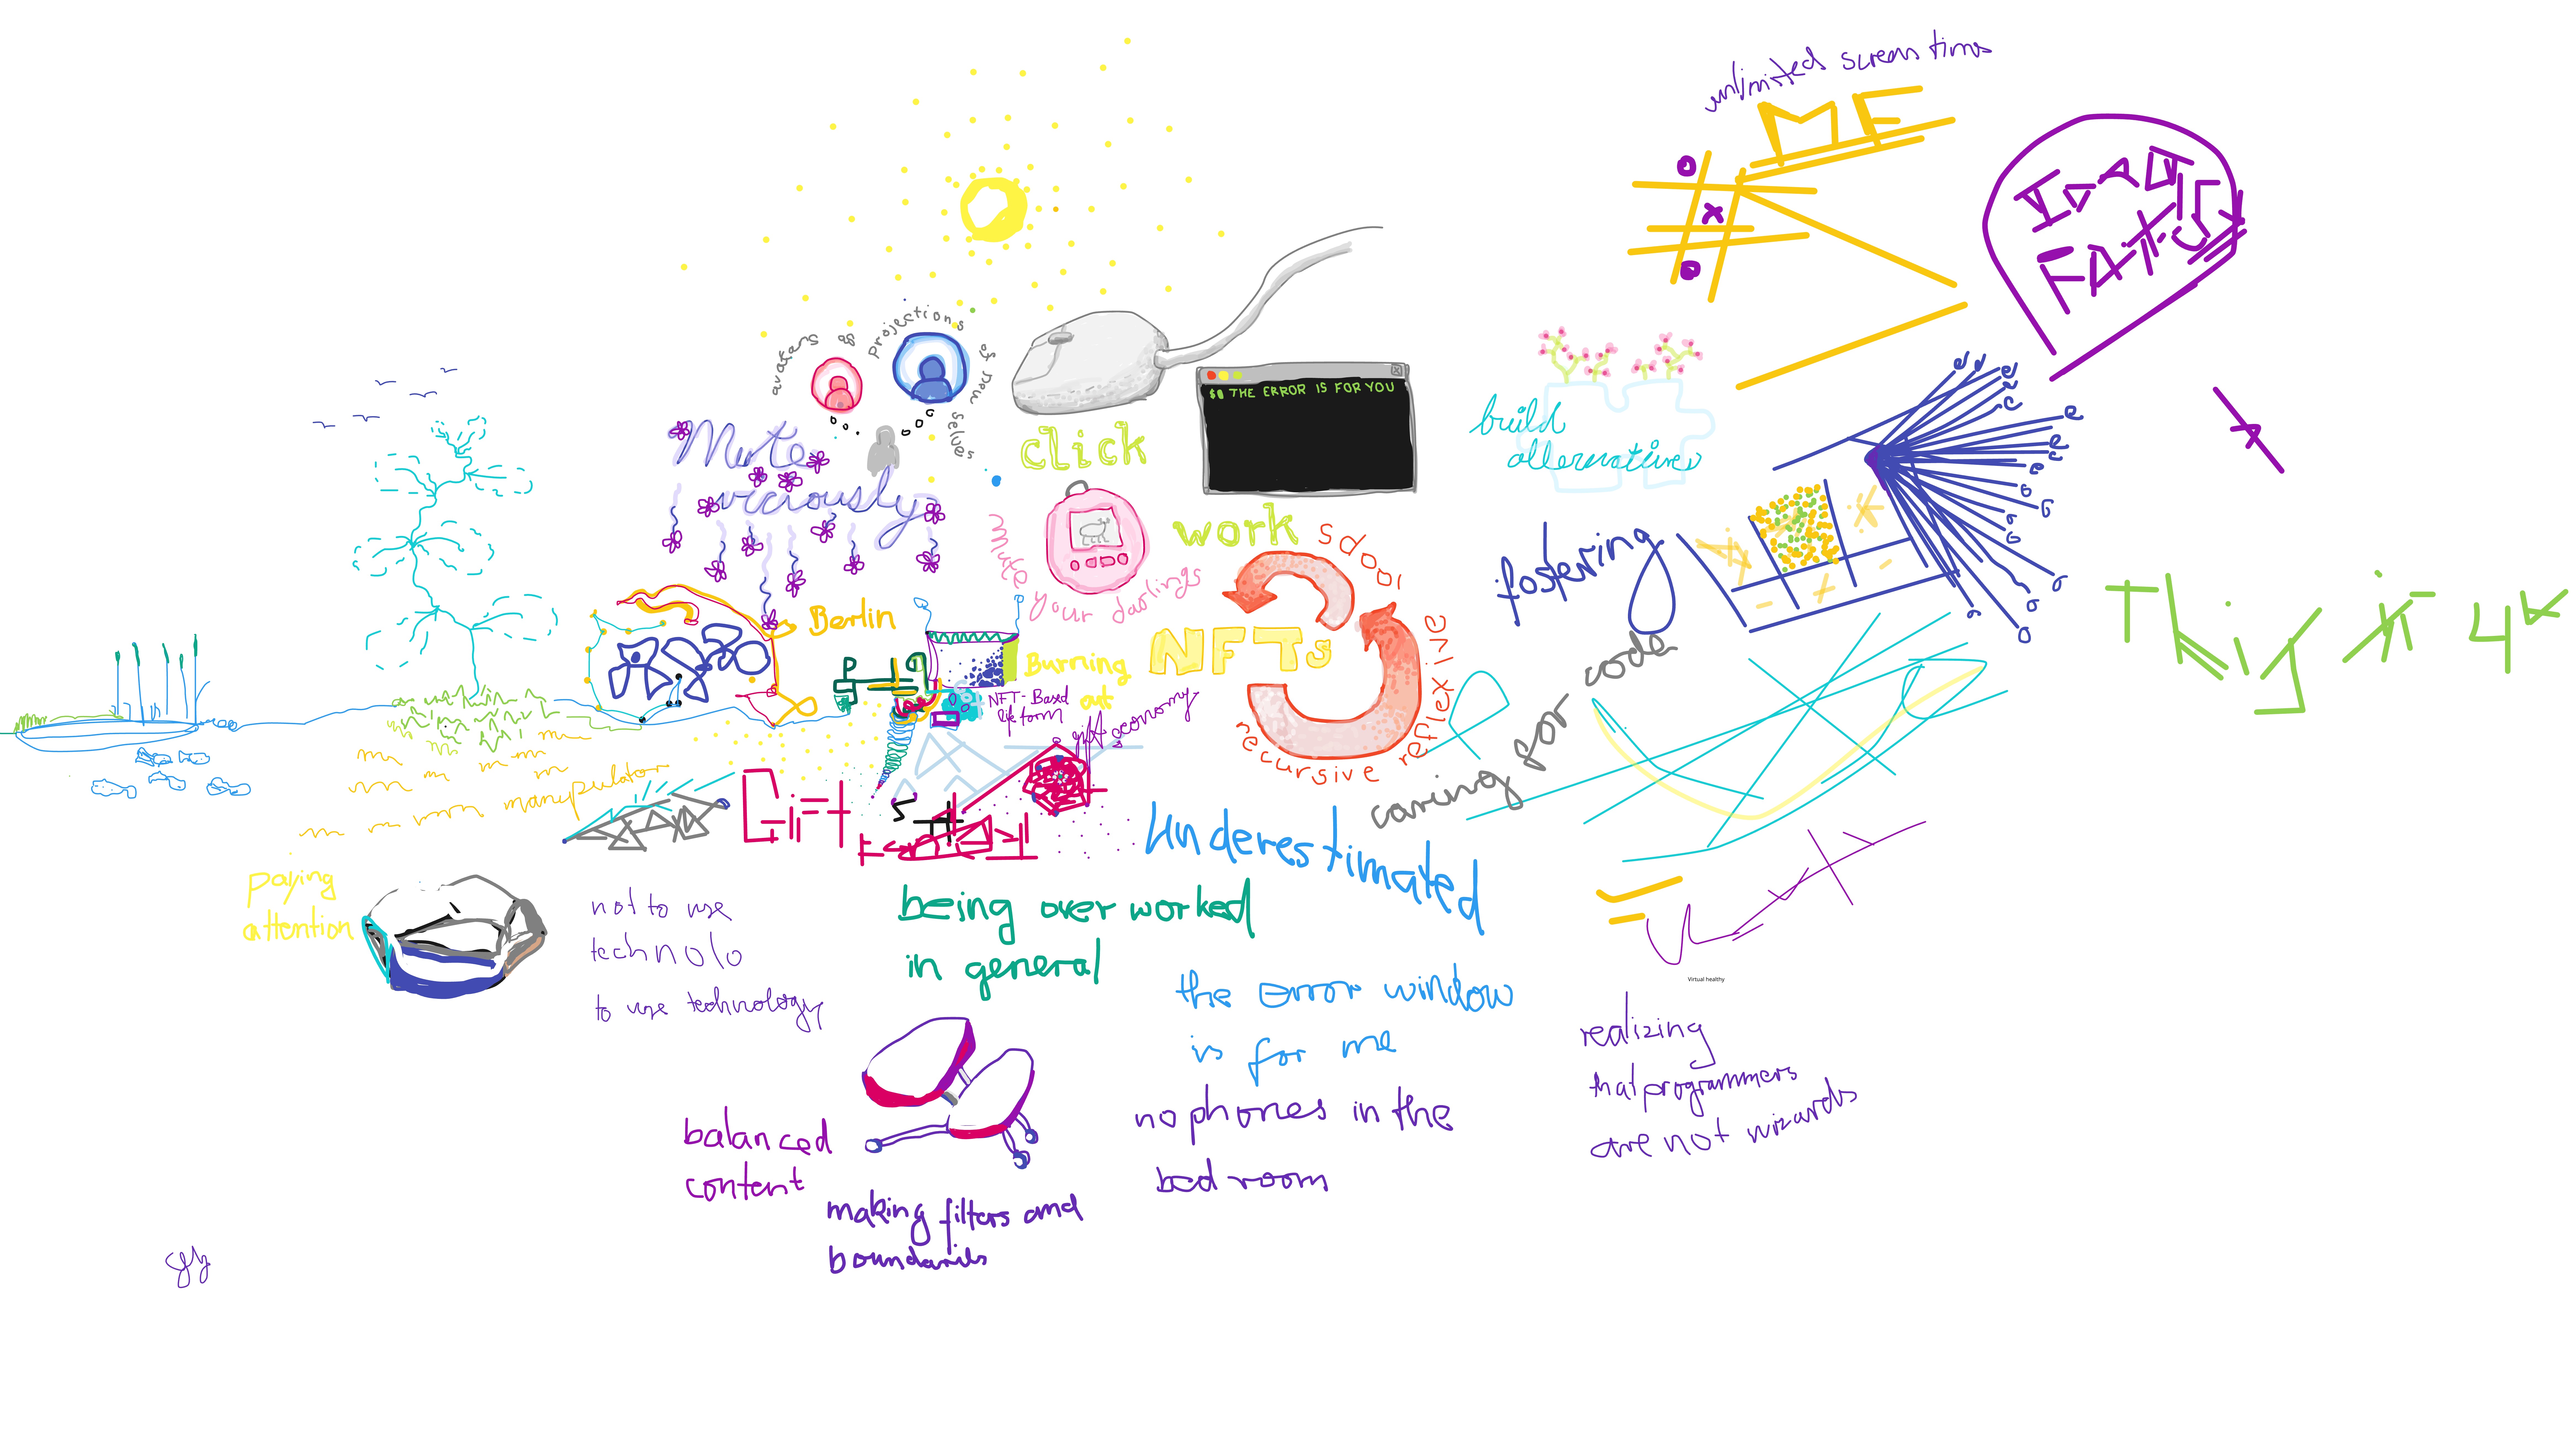 unlimited screens time
ME
x
avatars as projections of new selves
$ THE ERROR IS FOR YOU
Mute
viciously
click
build
alternatives
work
mute your darlings
recursive reflexive loops
fostering
Berlin
NFTs
Burning
out
NFT-Based
life form
gift economy
caring for code
manypulator
Gift
Underestimated
paying
attention
not to use
technolo
to use technology
being over worked
in general
the error window
is for me
Virtual healthy
realizing
that programmers
are not wizards
no phones in the
bed room
balanced
content
making filters and
boundaries